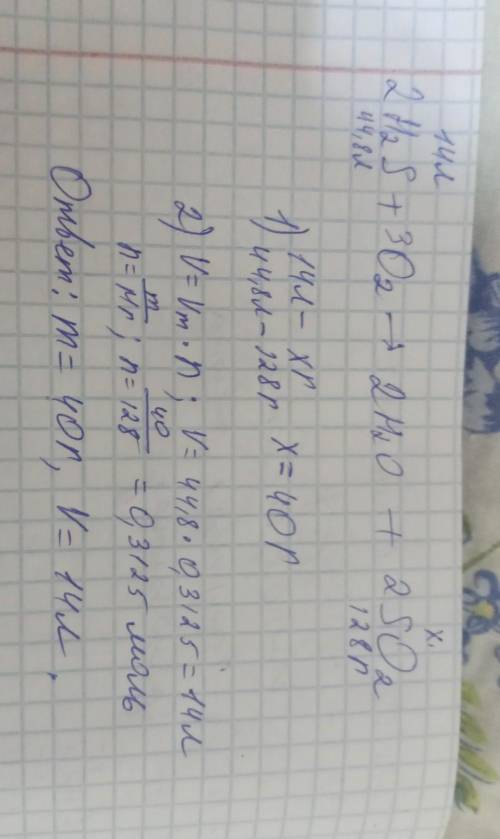 14л x
2H₂S + 3O₂ → 2H₂O + 2SO₂
44,8л 128г
1) 14л – xг
44,8л – 128г x = 40г
2) V = Vm · n; V = 44,8 · 0,3125 = 14л
n = m/Mr; n = 40/128 = 0,3125 моль
Ответ: m = 40г, V = 14л.